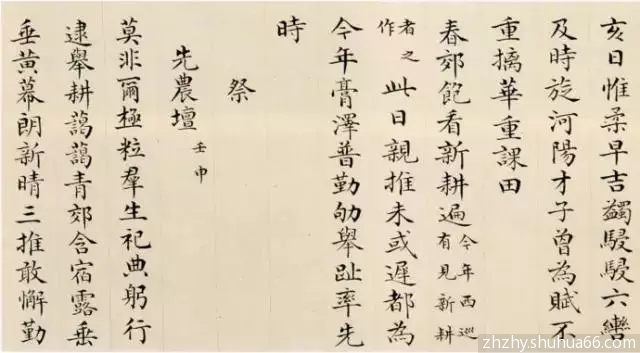 亥日惟柔早吉蠲駸駸六轡
及時旋河陽才子曾為賦不
重摛華重課田
春郊飽看新耕遍今年西巡有見新耕
者之作此日親推未或遲都為
今年膏澤普勤劬舉趾率先
時
祭
先農壇壬申
莫非爾極粒羣生祀典躬行
逮舉耕藹藹青郊含宿露垂
垂黃幕朗新晴三推敢懈勤
zhzhy.shuhua66.com